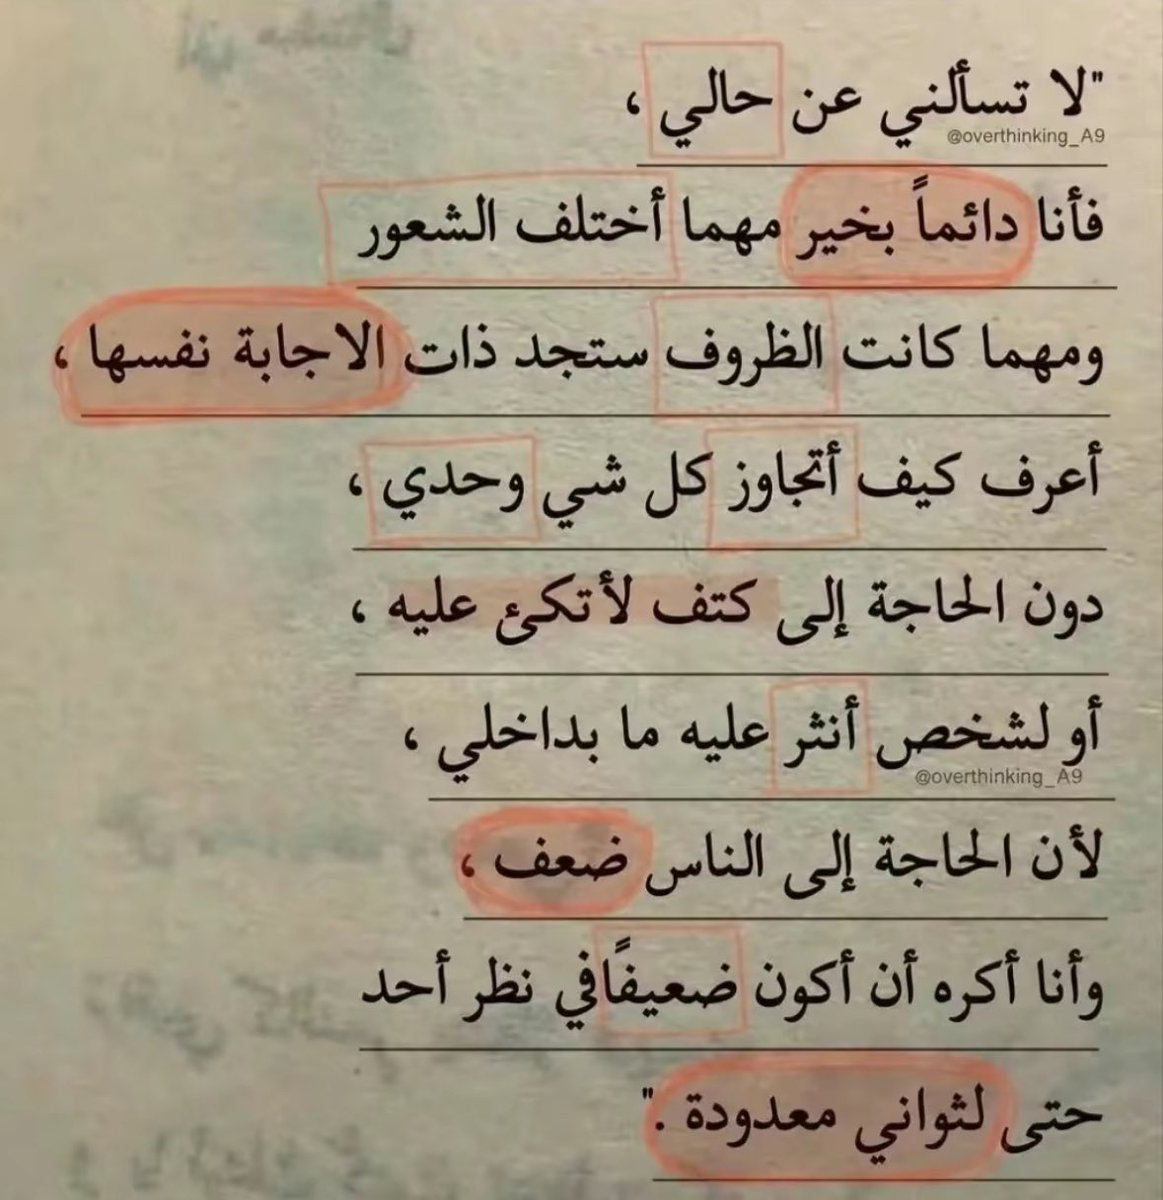 "لا تسألني عن حالي ،
@overthinking_A9
فأنا دائماً بخير مهما أختلف الشعور
ومهما كانت الظروف ستجد ذات الاجابة نفسها ،
أعرف كيف أتجاوز كل شي وحدي ،
دون الحاجة إلى كتف لأتكئ عليه ،
أو لشخص أنثر عليه ما بداخلي ،
@overthinking_A9
لأن الحاجة إلى الناس ضعف ،
وأنا أكره أن أكون ضعيفًا في نظر أحد
حتى لثواني معدودة ."